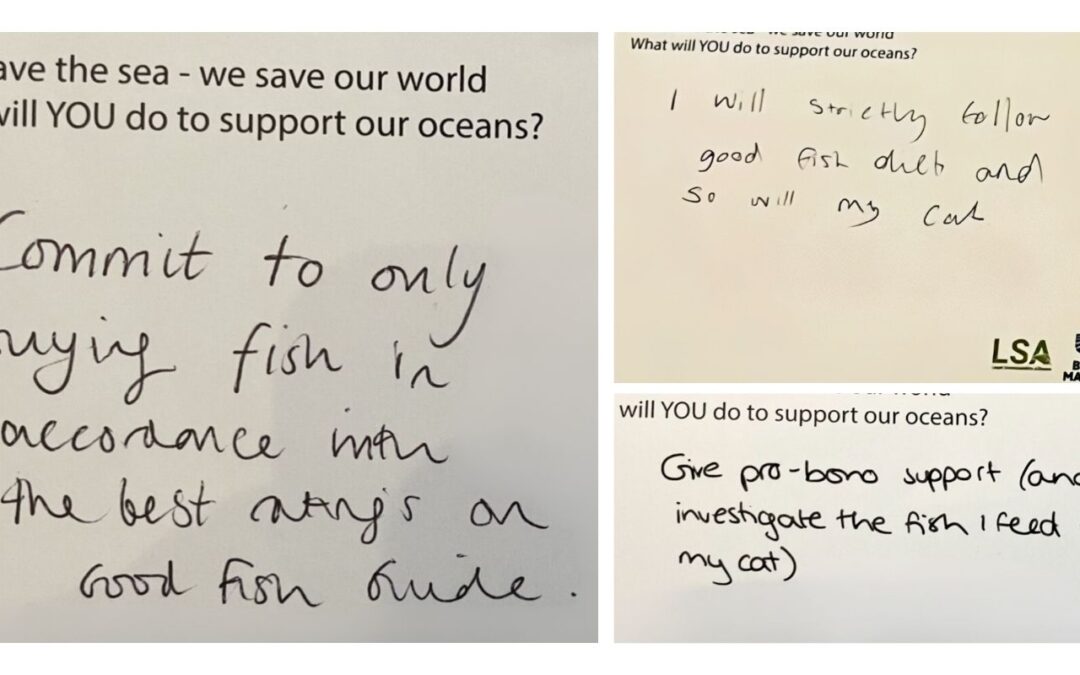 ave the sea - we save our world
will YOU do to support our oceans?
Commit to only
uying fish in
accordance with
the best ratings on
Good Fish Guide.
we save our world
What will YOU do to support our oceans?
I will strictly follow
good fish diet and
so will my cat
LSA
MA
will YOU do to support our oceans?
Give pro-bono support (and
investigate the fish I feed
my cat)